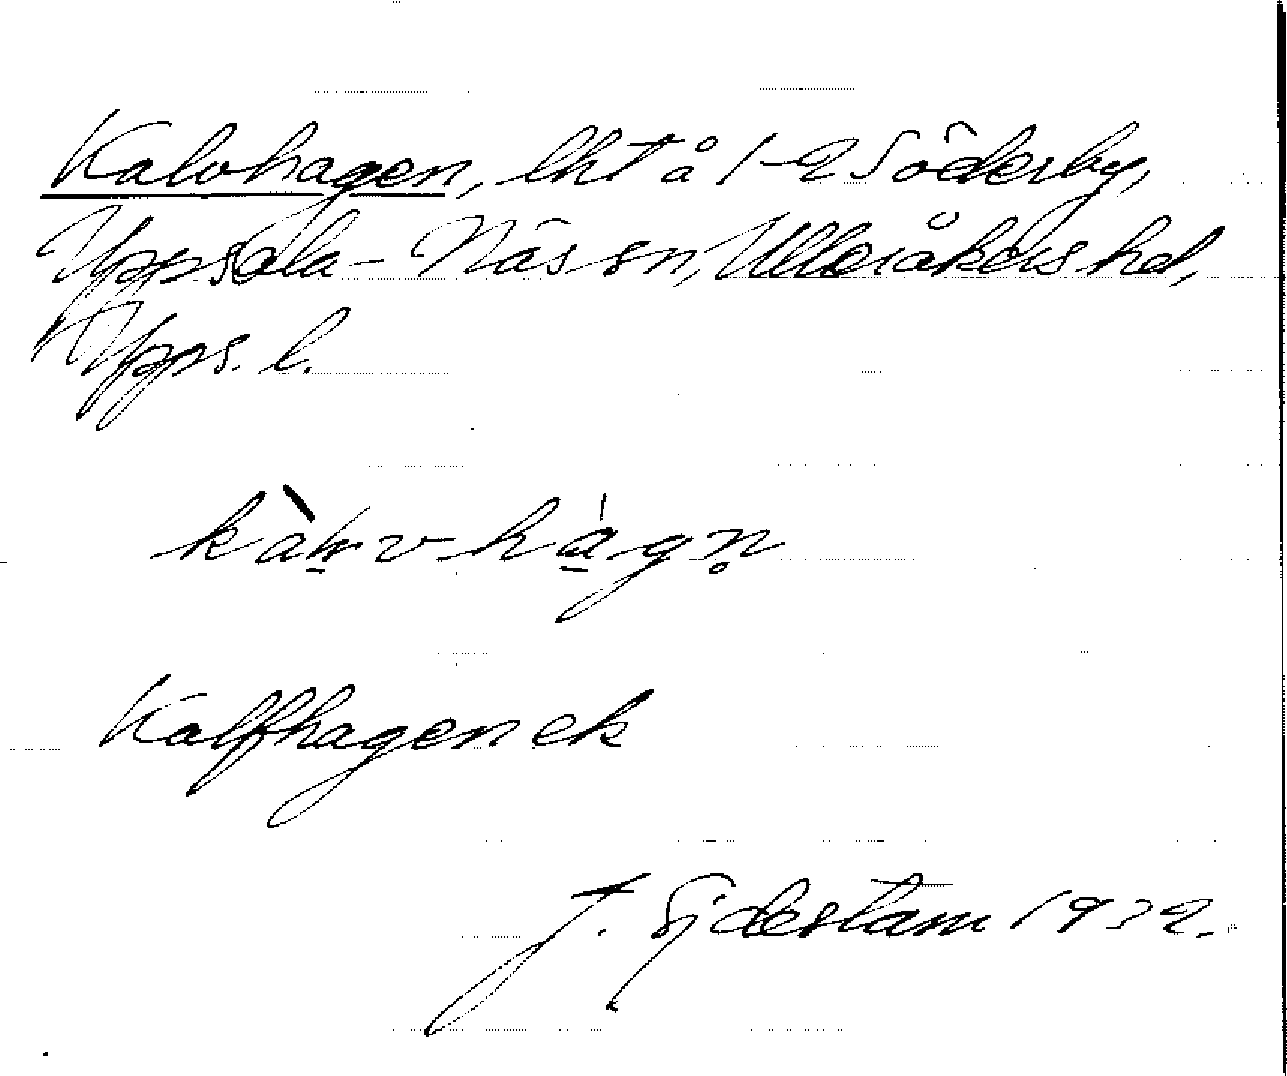 Kalvhagen, lht å 1-2 Söderby,
Uppsala-Näs sn, Ulleråkers hd,
Upps. l.
Kalfhagen ek
1932.